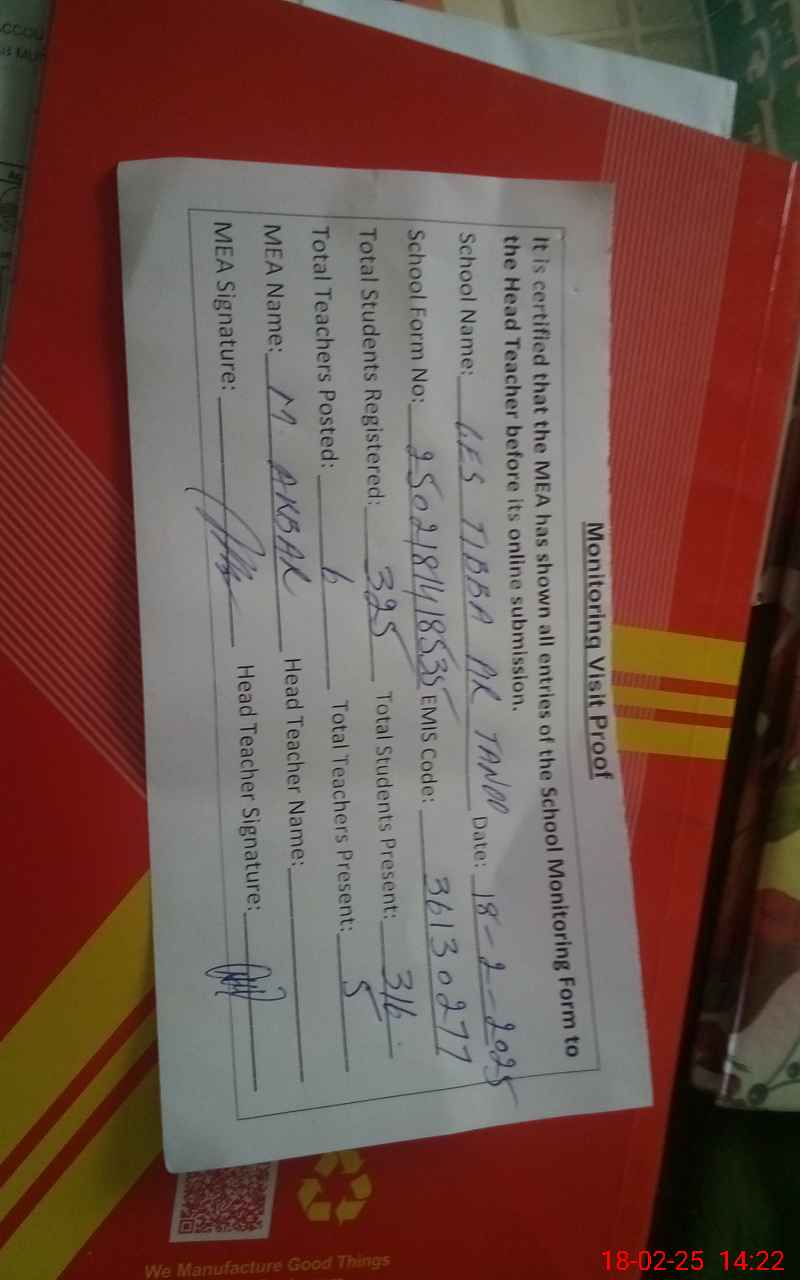 ACCOU
Monitoring Visit Proof
It is certified that the MEA has shown all entries of the School Monitoring Form to
the Head Teacher before its online submission.
School Name: GES TIBBA AR TANDO Date: 18-2-2025
School Form No: 2502181418535 EMIS Code: 36130277
Total Students Registered: 325 Total Students Present: 316
Total Teachers Posted: 6 Total Teachers Present: 5
MEA Name: M. AKBAR Head Teacher Name:
MEA Signature: Head Teacher Signature:
We Manufacture Good Things
18-02-25 14:22